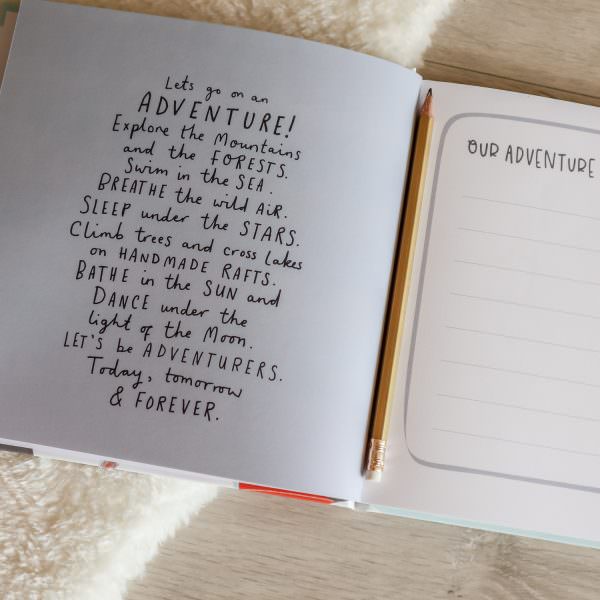 Lets go on an
ADVENTURE!
Explore the Mountains
and the FORESTS.
Swim in the SEA.
BREATHE the wild AIR.
SLEEP under the STARS.
Climb trees and cross lakes
on HANDMADE RAFTS.
BATHE in the SUN and
DANCE under the
light of the Moon.
LET'S be ADVENTURERS.
Today, tomorrow
& FOREVER.
OUR ADVENTURE